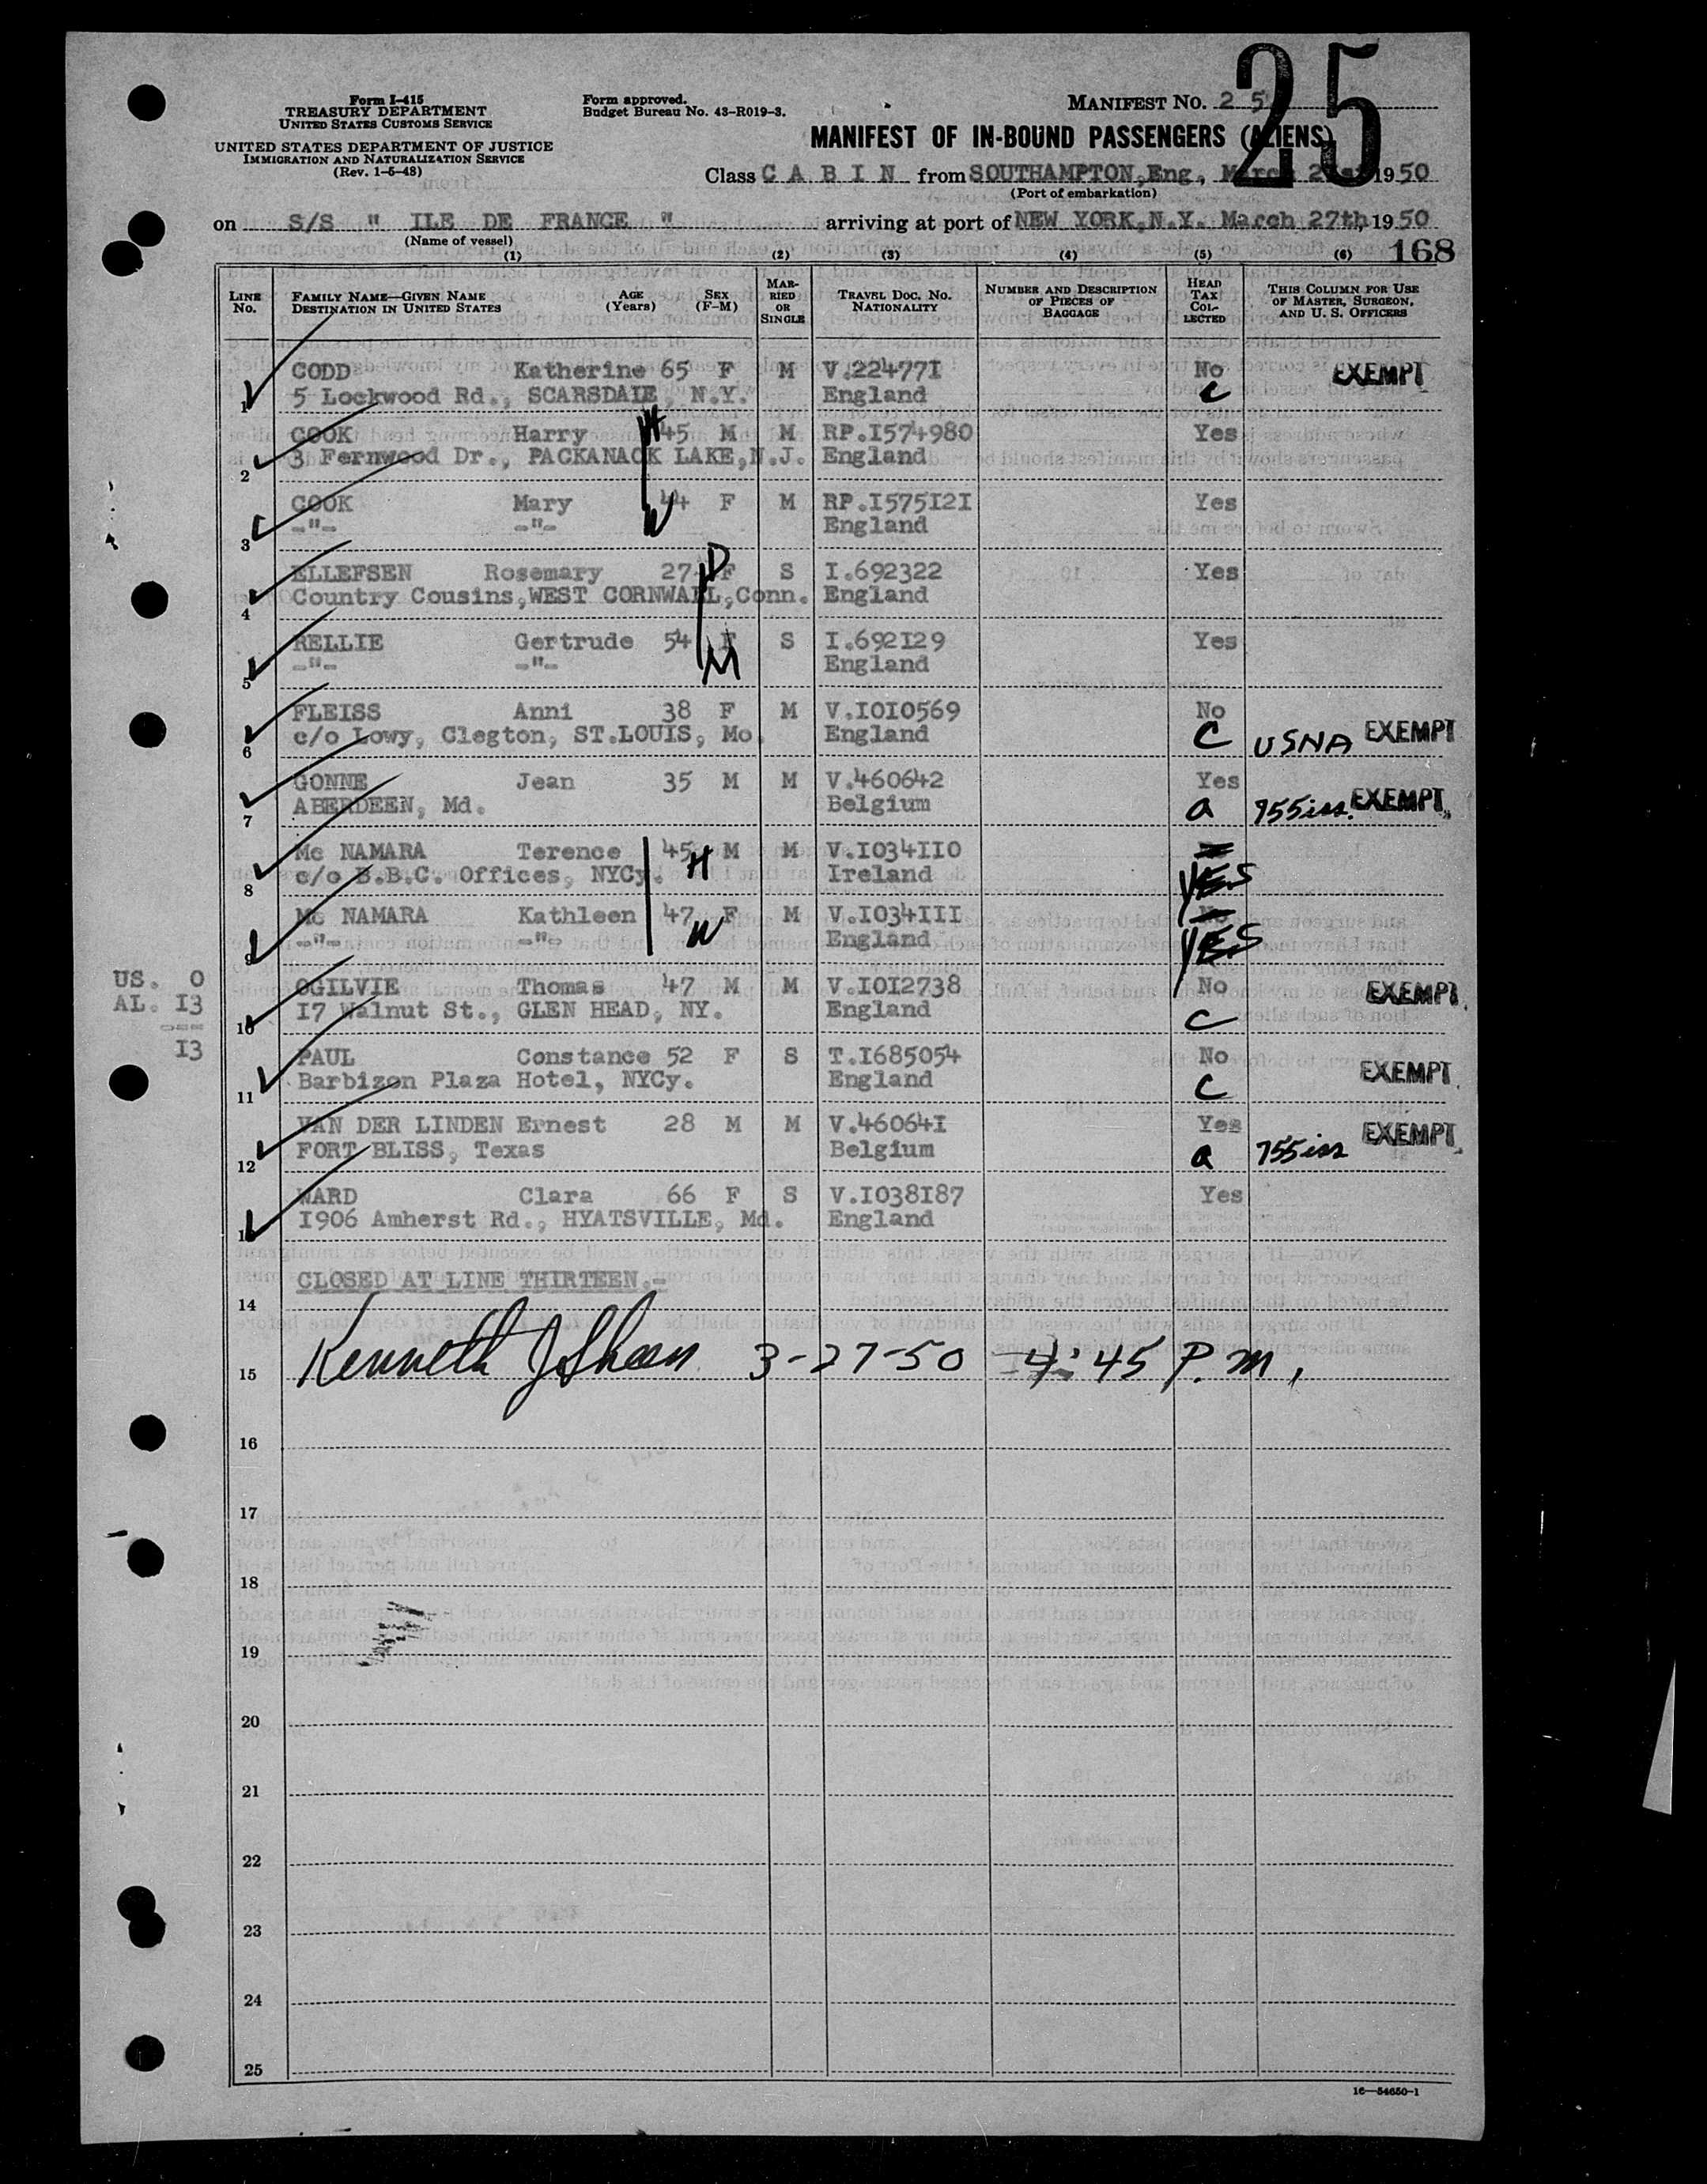 25
Form I-415
TREASURY DEPARTMENT
UNITED STATES CUSTOMS SERVICE
UNITED STATES DEPARTMENT OF JUSTICE
IMMIGRATION AND NATURALIZATION SERVICE
(Rev. 1-5-48)
Form approved.
Budget Bureau No. 43-R019-3.
MANIFEST NO. 25
MANIFEST OF IN-BOUND PASSENGERS (ALIENS)
Class C A B I N from SOUTHAMPTON, Eng., March 1950
(Port of embarkation)
on S/S " ILE DE FRANCE " arriving at port of NEW YORK, N.Y. March 27th, 1950
(Name of vessel)
168
(1) (2) (3) (4) (5) (6)
LINE No. FAMILY NAME—GIVEN NAME DESTINATION IN UNITED STATES AGE (Years) SEX (F-M) MARRIED OR SINGLE TRAVEL DOC. NO. NATIONALITY NUMBER AND DESCRIPTION OF PIECES OF BAGGAGE HEAD TAX COLLECTED THIS COLUMN FOR USE OF MASTER, SURGEON, AND U. S. OFFICERS
CODD Katherine 65 F M V.224771 No EXEMPT
1 5 Lockwood Rd., SCARSDALE, N.Y. England C
COOK Harry H 45 M M RP.I574980 Yes
2 3 Fernwood Dr., PACKANACK LAKE, N.J. England
COOK Mary 44 F M RP.I575I2I Yes
3 -"- -"- W England
ELLEFSEN Rosemary 27 D F S I.692322 Yes
4 Country Cousins, WEST CORNWALL, Conn. England
RELLIE Gertrude 54 F S I.692I29 Yes
5 -"- -"- M England
FLEISS Anni 38 F M V.IOIO569 No
6 c/o Lowy, Clegton, ST.LOUIS, Mo. England C USNA EXEMPT
GONNE Jean 35 M M V.460642 Yes
7 ABERDEEN, Md. Belgium a 755 iss. EXEMPT
Mc NAMARA Terence 45 H M M V.I034II0
8 c/o B.B.C. Offices, NYCy. Ireland YES
Mc NAMARA Kathleen 47 F M V.I034III No
9 -"- -"- W England YES
US. 0
AL. I3
---
I3
OGILVIE Thomas 47 M M V.IOI2738 No EXEMPT
10 I7 Walnut St., GLEN HEAD, NY. England C
PAUL Constance 52 F S T.I685054 No EXEMPT
11 Barbizon Plaza Hotel, NYCy. England C
VAN DER LINDEN Ernest 28 M M V.46064I Yes EXEMPT
12 FORT BLISS, Texas Belgium a 755 iss
WARD Clara 66 F S V.I038I87 Yes
13 I906 Amherst Rd., HYATSVILLE, Md. England
CLOSED AT LINE THIRTEEN.-
14
15 Kenneth J 3-27-50 4:45 P.M.
16
17
18
19
20
21
22
23
24
25
16—54650-1